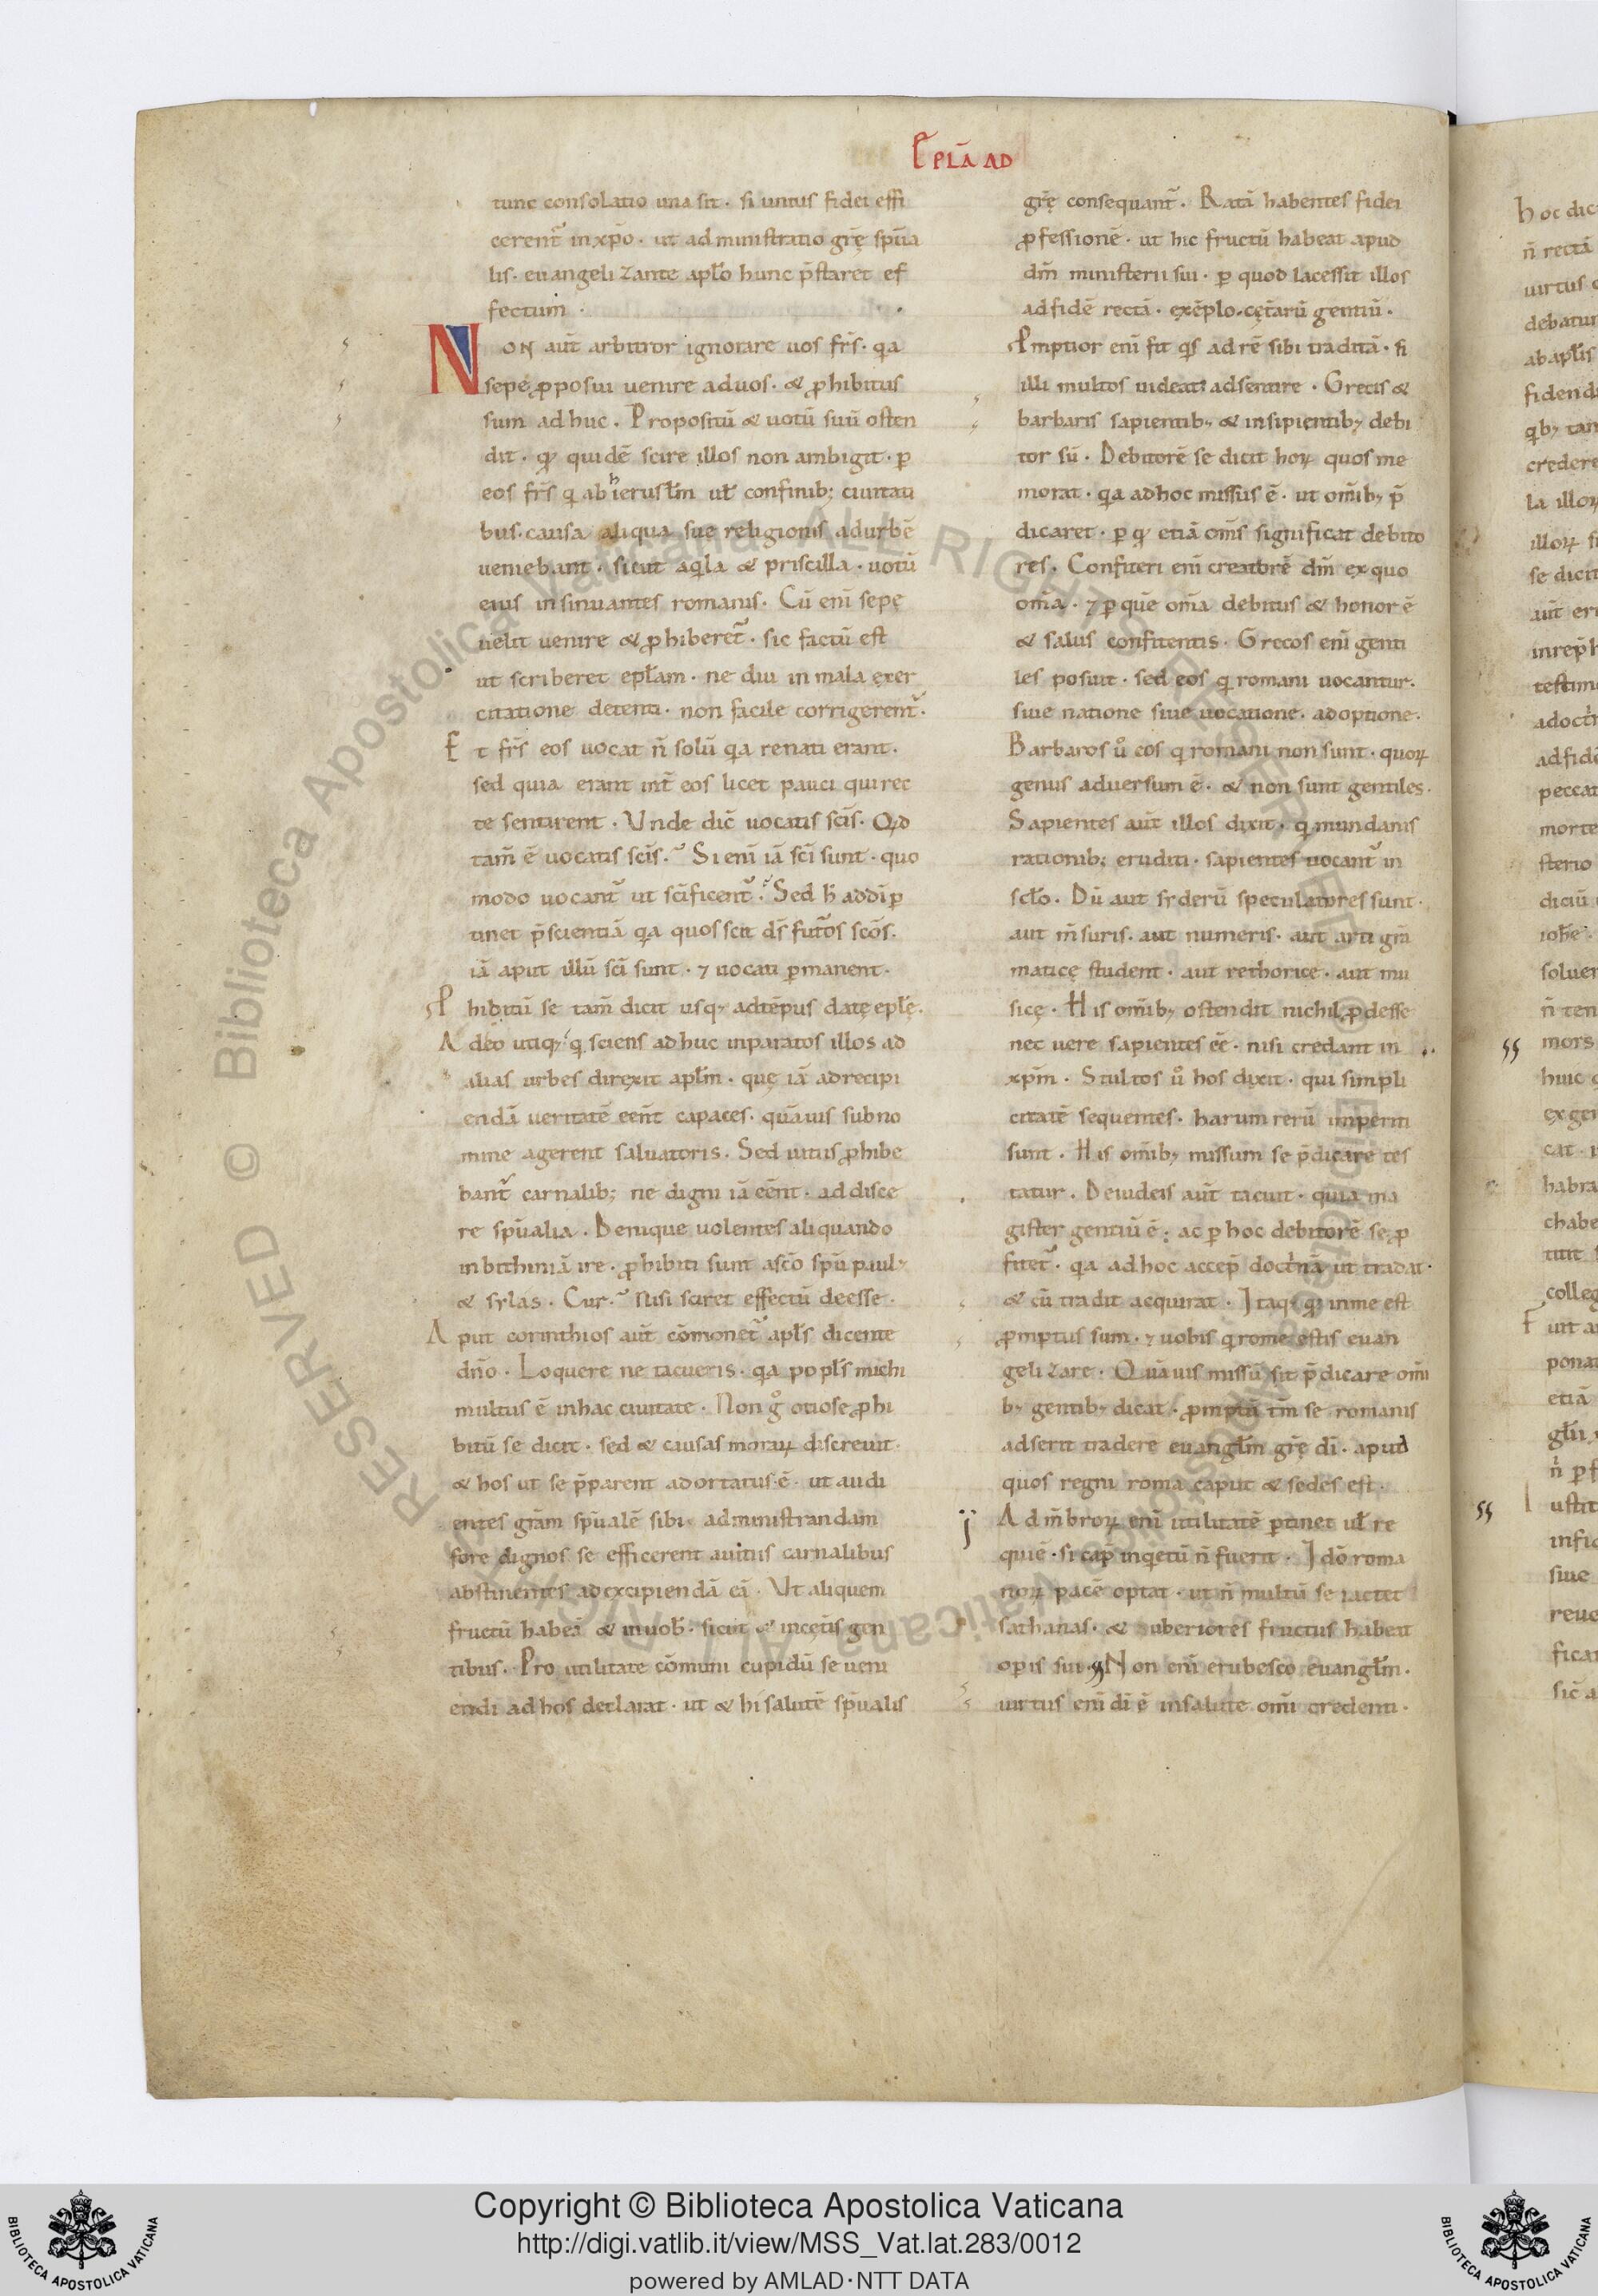 Ep̄LĀ AD
tunc consolatio una sit · si unius fidei effi
cerent᷑ in xp̄o · ut ad ministratio gr̄ę spūa
lis · euangelizante aplo hunc p̄staret ef
fectum ·
NON aūt arbitror ignorare uos fr̄s · qa
sepe ꝓposui uenire ad uos · & ꝓhibitus
sum adhuc · Propositū & uotū suū osten
dit · qđ quidē scire illos non ambigit · ꝑ
eos fr̄s qi ab hierusłm uł confinib; ciuitati
bus · causa aliqua sue religionis ad urbē
ueniebant · sicut aqila & priscilla · uotū
eius insinuantes romanis · Cū enī sepe
uelit uenire & ꝓhiberet᷑ · sic factū est
ut scriberet epłam · ne diu in mala exer
citatione detenti · non facile corrigerent᷑ ·
Et fr̄s eos uocat n̄ solū qa renati erant ·
sed quia erant int̄ eos licet pauci qui rec
te sentirent · Unde dic̄ uocatis sc̄is · Qđ
tam̄ ē uocatis sc̄is · Si enī iā sc̄i sunt · quo
modo uocant᷑ ut sc̄ificent᷑ · Sed h̄ ad dī ꝑ
tinet p̄scientiā qa quos scit ds̄ futꝰos scōs ·
iā aput illū sc̄i sunt · ⁊ uocati ꝑmanent ·
Phibitū se tam̄ dicit usqȝ ad tēpus datę epłę ·
Adeo utiqȝ qi sciens adhuc inparatos illos ad
alias urbes direxit apłm · quę iā ad recipi
endā ueritatē eēnt capaces · quāuis sub no
mine agerent saluatoris · Sed uitiis ꝓhibe
bant᷑ carnalib; ne digni iā eēnt · addisce
re spūalia · Denique uolentes aliquando
in bithiniā ire · ꝓhibiti sunt a scō spū paulꝰ
& sylas · Cur · nisi sciret effectū deesse ·
Aput corinthios aūt cōmonet᷑ apłs dicente
dn̄o · Loquere ne tacueris · qa popłs michi
multus ē in hac ciuitate · Non g° otiose ꝓhi
bitū se dicit · sed & causas moraꝝ discreuit ·
& hos ut se p̄parent adortatus ē · ut audi
entes gr̄am spūalē sibi administrandam
fore dignos se efficerent a uitiis carnalibus
abstinentes ad excipiendā eā · Ut aliquem
fructū habeā & in uob̄ · sicut & in cęt̄is gen
tibus · Pro utilitate cōmuni cupidū se ueni
endi ad hos declarat · ut & hi salutē spūalis
gr̄ę consequant᷑ · Ratā habentes fidei
ꝓfessionē · ut hic fructū habeat apud
dm̄ ministerii sui · ꝑ quod lacessit illos
ad fidē rectā · exēplo cęt̄arū gentiū ·
Pmptior enī fit qis ad rē sibi traditā · si
illi multos uideat adsentire · Grecis &
barbaris sapientibȝ & insipientibȝ debi
tor sū · Debitorē se dicit hoꝝ quos me
morat · qa ad hoc missus ē · ut omībȝ p̄
dicaret · ꝑ qđ etiā om̄s significat debito
res · Confiteri enī creatorē dm̄ ex quo
om̄a · ⁊ ꝑ quē om̄a debitus & honor ē
& salus confitentis · Grecos enī genti
les posuit · sed eos qi romani uocantur ·
siue natione siue uocatione · adoptione ·
Barbaros u° eos qi romani non sunt · quoꝝ
genus aduersum ē · & non sunt gentiles ·
Sapientes aūt illos dixit · qi mundanis
rationib; eruditi · sapientes uocant᷑ in
scło · Dū aut syderū speculatores sunt ·
aut m̄suris · aut numeris · aut arti grā
maticę student · aut rethorice · aut mu
sicę · His omībȝ ostendit nichil ꝓdesse
nec uere sapientes eē · nisi credant in
xpm̄ · Stultos u° hos dixit · qui simpli
citatē sequentes · harum rerū imperiti
sunt · His omībȝ missum se p̄dicare tes
tatur · De iudeis aūt tacuit · quia ma
gister gentiū ē · ac ꝑ hoc debitorē se ꝓ
fitet᷑ · qa ad hoc accep̄ doct̓nā ut tradat ·
& cū tradit acquirat · Itaqȝ qđ in me est
ꝓmptus sum · ⁊ uobis qi rome estis euan
gelizare · Quāuis missū sit p̄dicare omī
bȝ gentibȝ dicat · ꝓmptū tm̄ se romanis
adserit tradere euangłm gr̄ę dī · apud
quos regni roma caput & sedes est ·
Ad m̄broꝝ enī utilitatē ꝑtinet uł re
quiē · si cap̄ inqietū n̄ fuerit · Idō roma
noꝝ pacē optat · ut n̄ multū se iactet
sathanas · & uberiores fructus habeat
opis sui · Non enī erubesco euangłm ·
uirtus enī dī ē in salute omī credenti ·
hoc dic
n̄ rectā
uirtus
debatur
ab apłis
fidendi
qibȝ tan
credere
la illoꝝ
illoꝝ si
se dicit
aūt eri
in rep̄h
testim
a doct̓
ad fidē
peccat
morte
sterio
diciū
ioh̄e ·
soluer
n̄ ten
mors
huic
ex gen
cat ·
habra
chabe
titit
colleg
Fuit a
ponat
etiā
głii
n̄ ꝑf
Iustit
infid
siue
reue
ficat
sic̄ a
RESERVED © Biblioteca Apostolica Vaticana ALL RIGHTS RESERVED © Biblioteca Apostolica Vaticana ALL RIGHTS
Copyright © Biblioteca Apostolica Vaticana
http://digi.vatlib.it/view/MSS_Vat.lat.283/0012
powered by AMLAD·NTT DATA
BIBLIOTECA APOSTOLICA VATICANA
BIBLIOTECA APOSTOLICA VATICANA